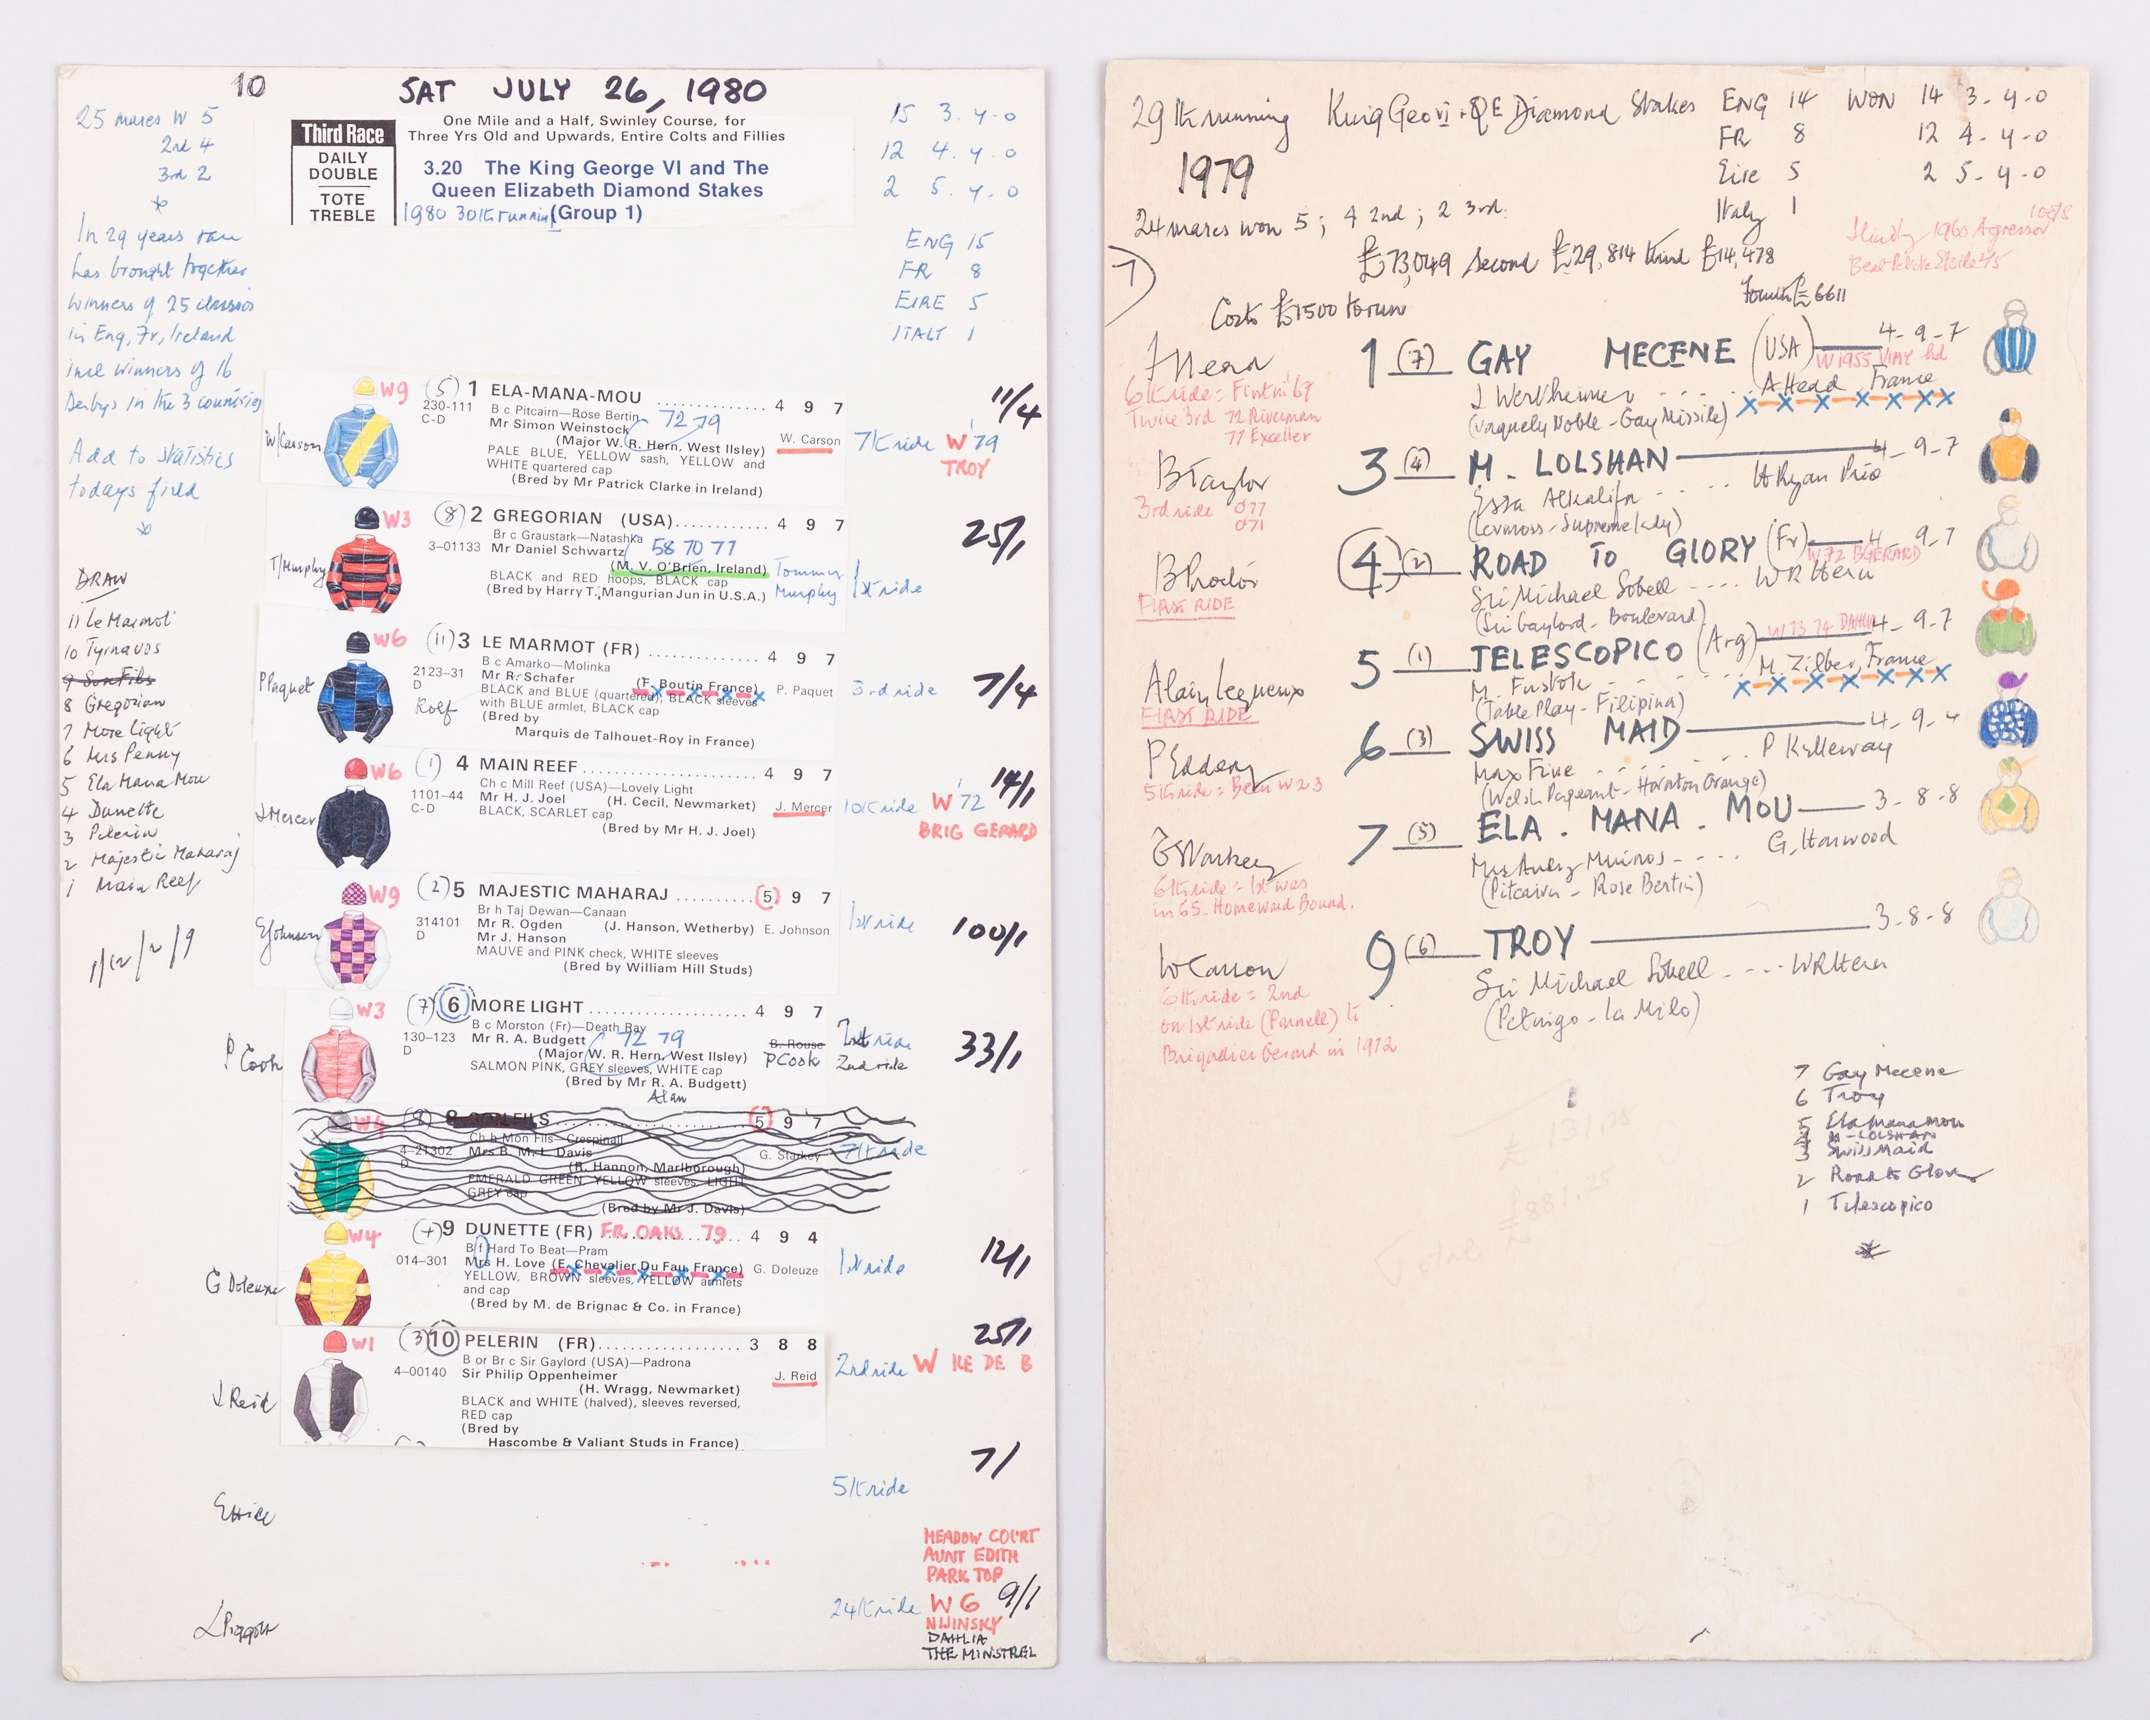 10
SAT JULY 26, 1980
Third Race
DAILY
DOUBLE
TOTE
TREBLE
One Mile and a Half, Swinley Course, for
Three Yrs Old and Upwards, Entire Colts and Fillies
3.20 The King George VI and The
Queen Elizabeth Diamond Stakes
1980 30th running (Group 1)
15 3. 4-0
12 4. 4.0
2 5. 4-0
ENG 15
FR 8
EIRE 5
ITALY 1
25 mares W 5
2nd 4
3rd 2
In 29 years race
has brought together
winners of 25 classics
in Eng, Fr, Ireland
incl winners of 16
Derbys in the 3 countries
Add to statistics
todays field
DRAW
11 Le Marmot
10 Tyrnavos
9 Son Fils
8 Gregorian
7 More Light
6 Mrs Penny
5 Ela Mana Mou
4 Dunette
3 Pelerin
2 Majestic Maharaj
1 Main Reef
W Carson
W9 (5) 1 ELA-MANA-MOU .............. 4 9 7
11/4
230-111
C-D
B c Pitcairn—Rose Bertin
72 79
Mr Simon Weinstock
(Major W. R. Hern, West Ilsley) W. Carson
7th ride W '79
TROY
PALE BLUE, YELLOW sash, YELLOW and
WHITE quartered cap
(Bred by Mr Patrick Clarke in Ireland)
T Murphy
W3 (8) 2 GREGORIAN (USA)............ 4 9 7
25/1
Br c Graustark—Natashka
58 70 77
3-01133 Mr Daniel Schwartz
(M. V. O'Brien, Ireland) Tommy
Murphy 1st ride
BLACK and RED hoops, BLACK cap
(Bred by Harry T. Mangurian Jun in U.S.A.)
P Paquet
W6 (11) 3 LE MARMOT (FR) .............. 4 9 7
B c Amarko—Molinka
2123-31
D
Mr R. Schafer
Rolf
(F. Boutin France) P. Paquet 3rd ride 7/4
BLACK and BLUE (quartered), BLACK sleeves
with BLUE armlet, BLACK cap
(Bred by
Marquis de Talhouet-Roy in France)
J Mercer
W6 (1) 4 MAIN REEF...................... 4 9 7
14/1
Ch c Mill Reef (USA)—Lovely Light
1101-44
C-D
Mr H. J. Joel (H. Cecil, Newmarket) J. Mercer 10th ride W '72
BRIG GERARD
BLACK, SCARLET cap
(Bred by Mr H. J. Joel)
E Johnson
W9 (2) 5 MAJESTIC MAHARAJ .......... 5 9 7
Br h Taj Dewan—Canaan
314101
D
Mr R. Ogden
Mr J. Hanson
(J. Hanson, Wetherby) E. Johnson 1st ride 100/1
MAUVE and PINK check, WHITE sleeves
(Bred by William Hill Studs)
P Cook
W3 (7) 6 MORE LIGHT ...................... 4 9 7
B c Morston (Fr)—Death Ray
72 79
130-123
D
Mr R. A. Budgett
(Major W. R. Hern, West Ilsley)
B. Rouse
P Cook 2nd ride 33/1
SALMON PINK, GREY sleeves, WHITE cap
(Bred by Mr R. A. Budgett)
Alan
(9) 8 SON FILS 5 9 7
Ch h Mon Fils—Crespinall
4-21302
D
Mrs B. M. L. Davis
(R. Hannon, Marlborough) G. Starkey 7th ride
EMERALD GREEN, YELLOW sleeves, LIGHT
GREY cap
(Bred by Mr J. Davis)
G Doleuze
W4 (4) 9 DUNETTE (FR) FR. OAKS 79 .. 4 9 4
12/1
B f Hard To Beat—Pram
014-301 Mrs H. Love (E. Chevalier Du Fau, France) G. Doleuze 1st ride
YELLOW, BROWN sleeves, YELLOW armlets
and cap
(Bred by M. de Brignac & Co. in France)
J Reid
W1 (3) 10 PELERIN (FR).................. 3 8 8
25/1
B or Br c Sir Gaylord (USA)—Padrona
4-00140 Sir Philip Oppenheimer
(H. Wragg, Newmarket) J. Reid 2nd ride W ILE DE B
BLACK and WHITE (halved), sleeves reversed,
RED cap
(Bred by
Hascombe & Valiant Studs in France)
E Hide
5th ride
7/
L Piggott
24th ride
MEADOW COURT
AUNT EDITH
PARK TOP
W 6 9/1
NIJINSKY
DAHLIA
THE MINSTREL
29th running King Geo VI + QE Diamond Stakes
1979
ENG 14 WON 14 3-4-0
FR 8 12 4-4-0
Eire 5 2 5-4-0
Italy 1
24 mares won 5; 4 2nd; 2 3rd.
£73,049 Second £29,814 third £14,478
Fourth £6611
Costs £1500 to run
1960 Agressor
F Head
6th ride = First in '67
Twice 3rd 72 Riverman
77 Exceller
1 (7) GAY MECENE (USA) 4-9-7
J Wertheimer A Head France
(Vaguely Noble - Gay Missile)
B Taylor
3rd ride
3 (4) M-LOLSHAN 4-9-7
Essa Alkalifa H Ryan Price
(Levmoss - Supreme Lady)
B Proctor
FIRST RIDE
4 (2) ROAD TO GLORY (Fr) 4-9-7
W 72 B GERARD
Sir Michael Sobell .... W R Hern
(Sir Gaylord - Boulevard)
Alain Lequeux
FIRST RIDE
5 (1) TELESCOPICO (Arg) 4-9-7
W 73 74 DAHLIA
M. Fustok M. Zilber, France
(Table Play - Filipina)
P Eddery
5th ride = Been W 2 3
6 (3) SWISS MAID 4-9-4
Max Fine P Kelleway
(Welsh Pageant - Hornton Grange)
G Starkey
6th ride = 1st was
in 65 Homeward Bound.
7 (5) ELA-MANA-MOU 3-8-8
G, Harwood
(Pitcairn - Rose Bertin)
W Carson
6th ride = 2nd
on 1st ride (Parnell) to
Brigadier Gerard in 1972
9 (6) TROY 3-8-8
Sir Michael Sobell .... W R Hern
(Petingo - La Milo)
7 Gay Mecene
6 Troy
5 Ela Mana Mou
4 M-LOLSHAN
3 Swiss Maid
2 Road to Glory
1 Telescopico